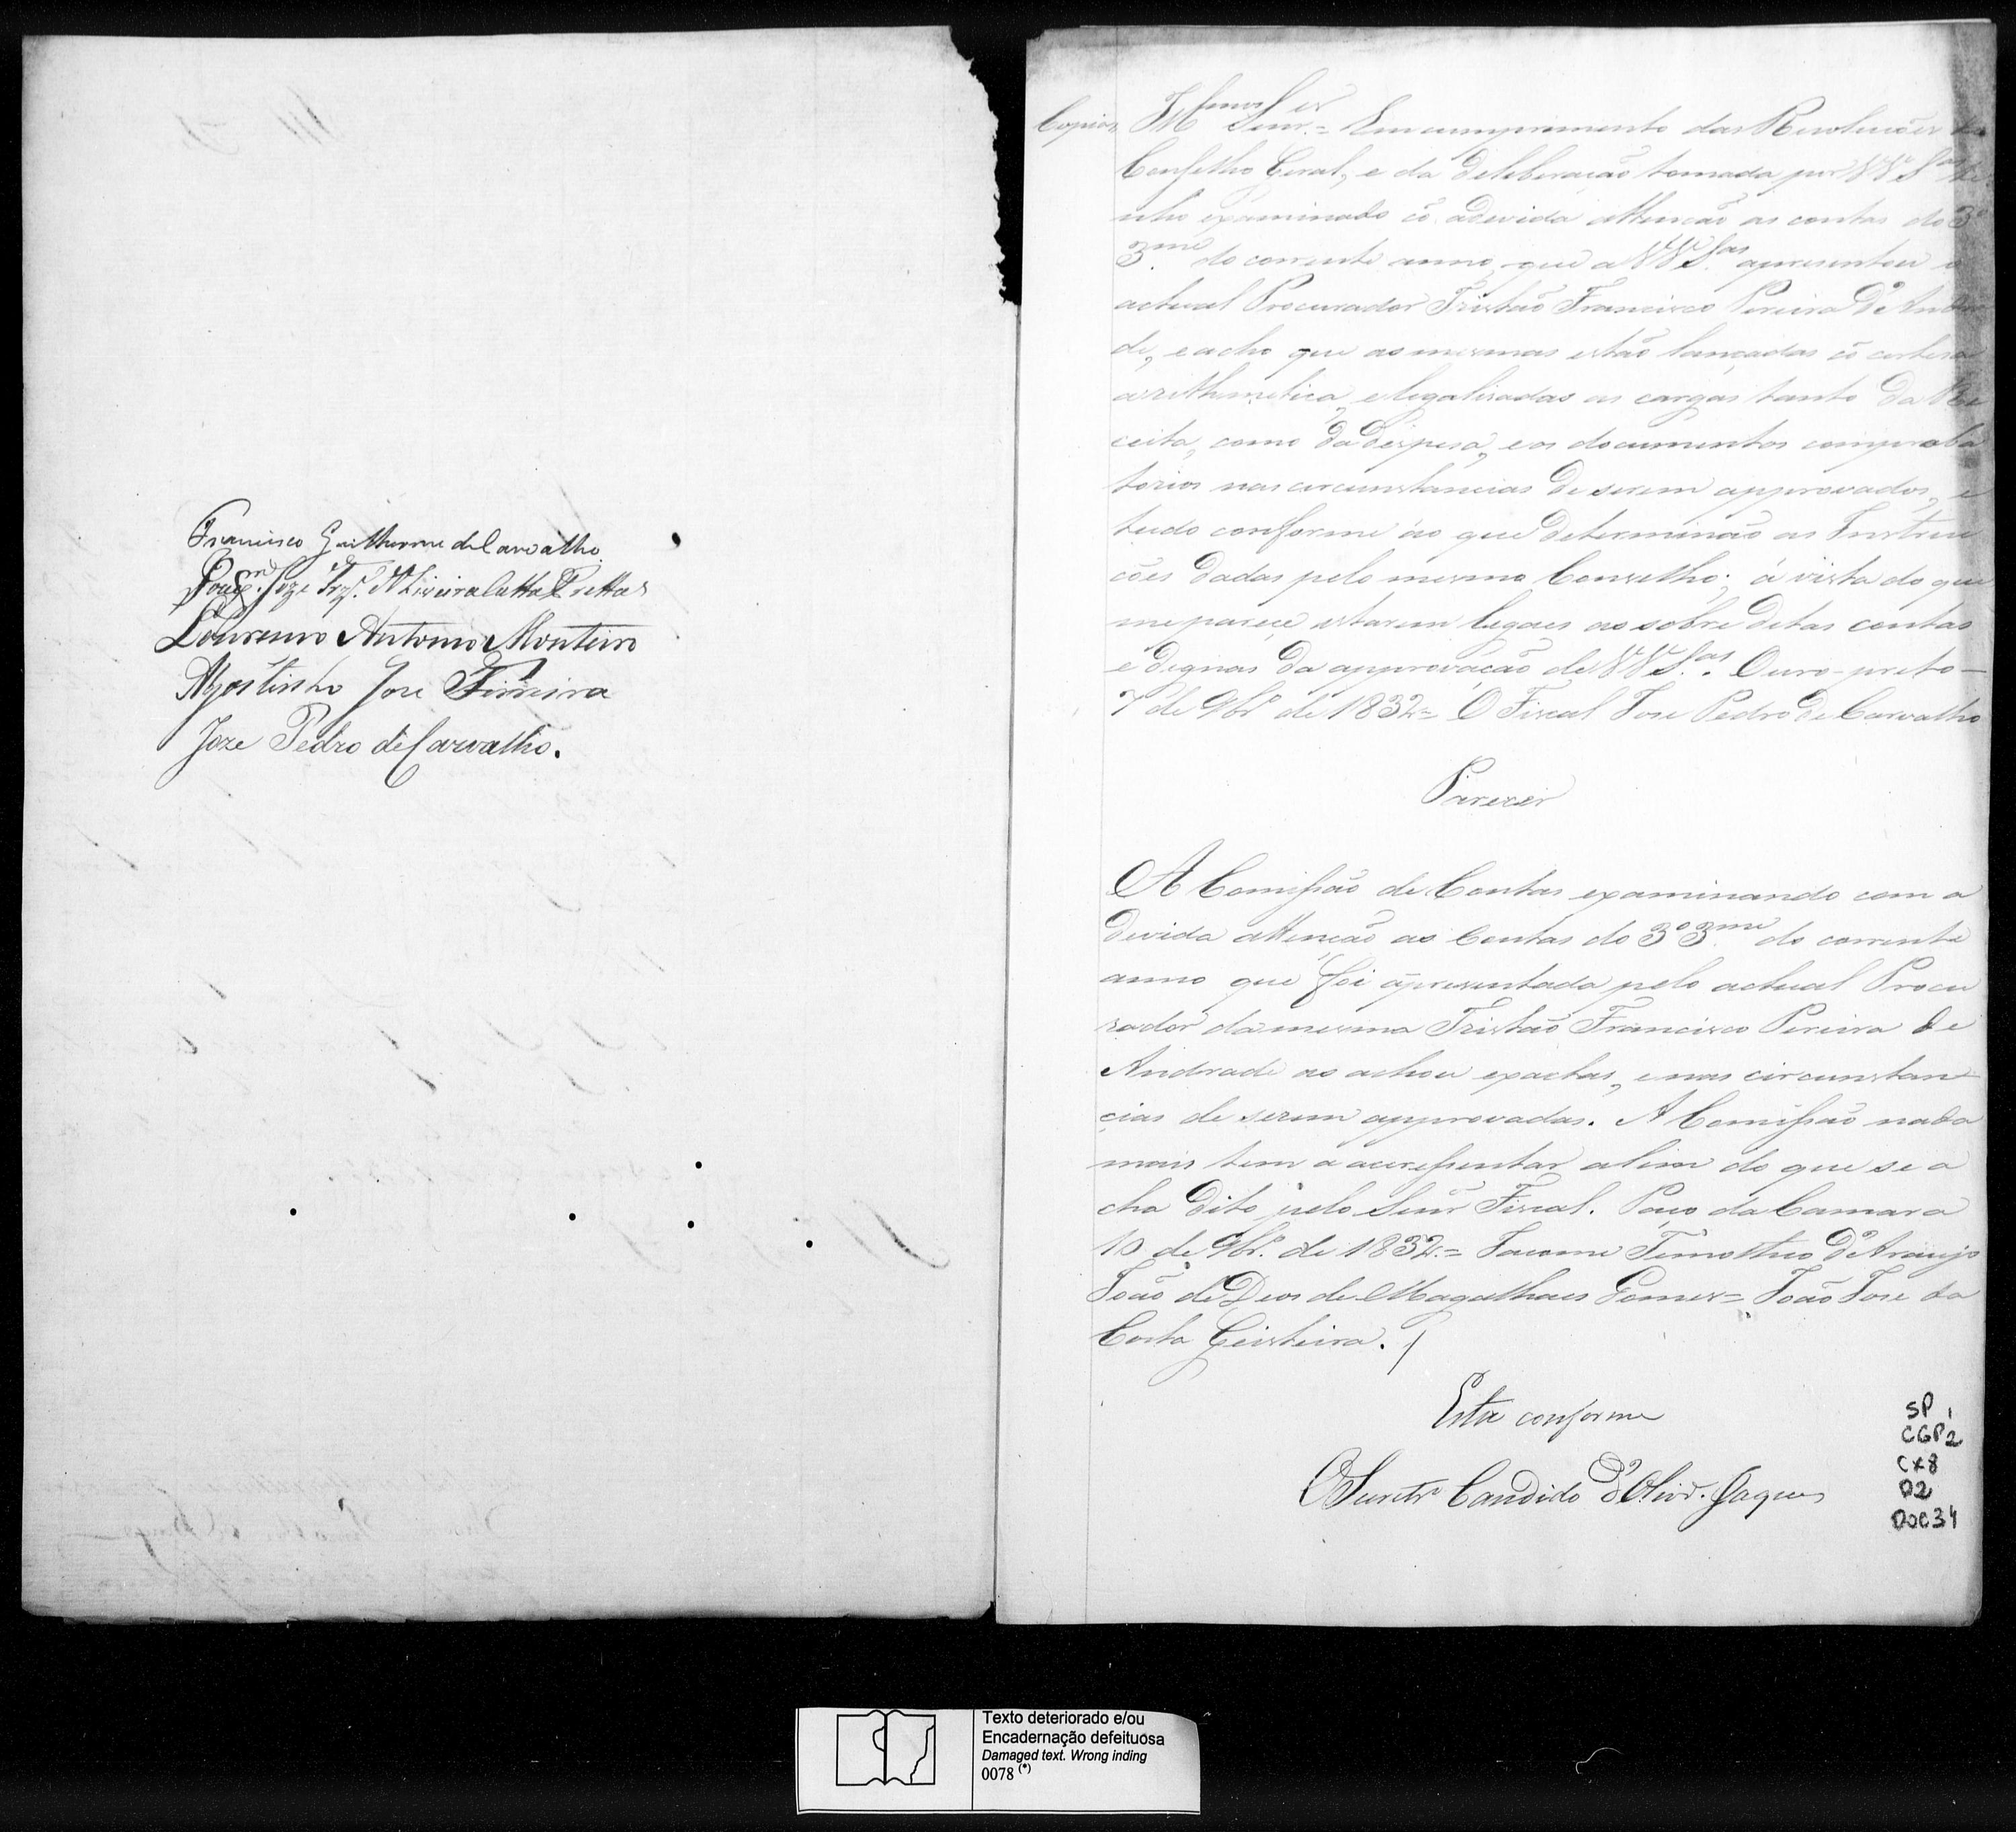 Francisco Guilherme de Carvalho
Joze Oliveira Cotta Freitas
Lourenço Antonio Monteiro
Agostinho Joze Ferreira
Joze Pedro de Carvalho.
Copia Illmos Snres = Em cumprimento das Resoluções do
Conselho Geral, e da deliberação tomada por VV Sas te
nho examinado cõ a devida attenção as contas do 3º
3.me do corrente anno, que a VV S.as apresentou o
actual Procurador Tristão Francisco Pereira de Andra
de, e acho que as mesmas estão lançadas cõ certesa
arithmetica, e legalisadas as cargas tanto da Re
ceita, como da despesa, e os documentos comproba
torios nas circunstancias de serem approvados, e
tudo conforme ão que determinão as Instruc
cões dadas pelo mesmo Conselho; á vista do que
me parece estarem legaes as sobre ditas contas
e dignas da approvação de VV S.as. Ouro-preto -
7 de 9br.o de 1832 = O Fiscal Jose Pedro de Carvalho
Parecer
A Comissão de Contas examinando com a
devida attenção as Contas do 3º 3.me do corrente
anno que foi apresentada pelo actual Procu
rador da mesma Tristão Francisco Pereira de
Andrade as achou exactas, e nas circunstan
cias de serem approvadas. A Comissão nada
mais tem a acressentar alem do que se a
cha dito pelo Senr Fiscal. Paço da Camara
10 de 9br.o de 1832. = Jacome Timotheo de Araujo
João de Deos de Magalhaes Gomes = João Jose da
Costa
Está conforme
O Secretr.o Candido d'Olivr.a Jaques
SP 1
CGP2
CX8
D2
DOC34
Texto deteriorado e/ou
Encadernação defeituosa
Damaged text. Wrong inding
0078 (*)